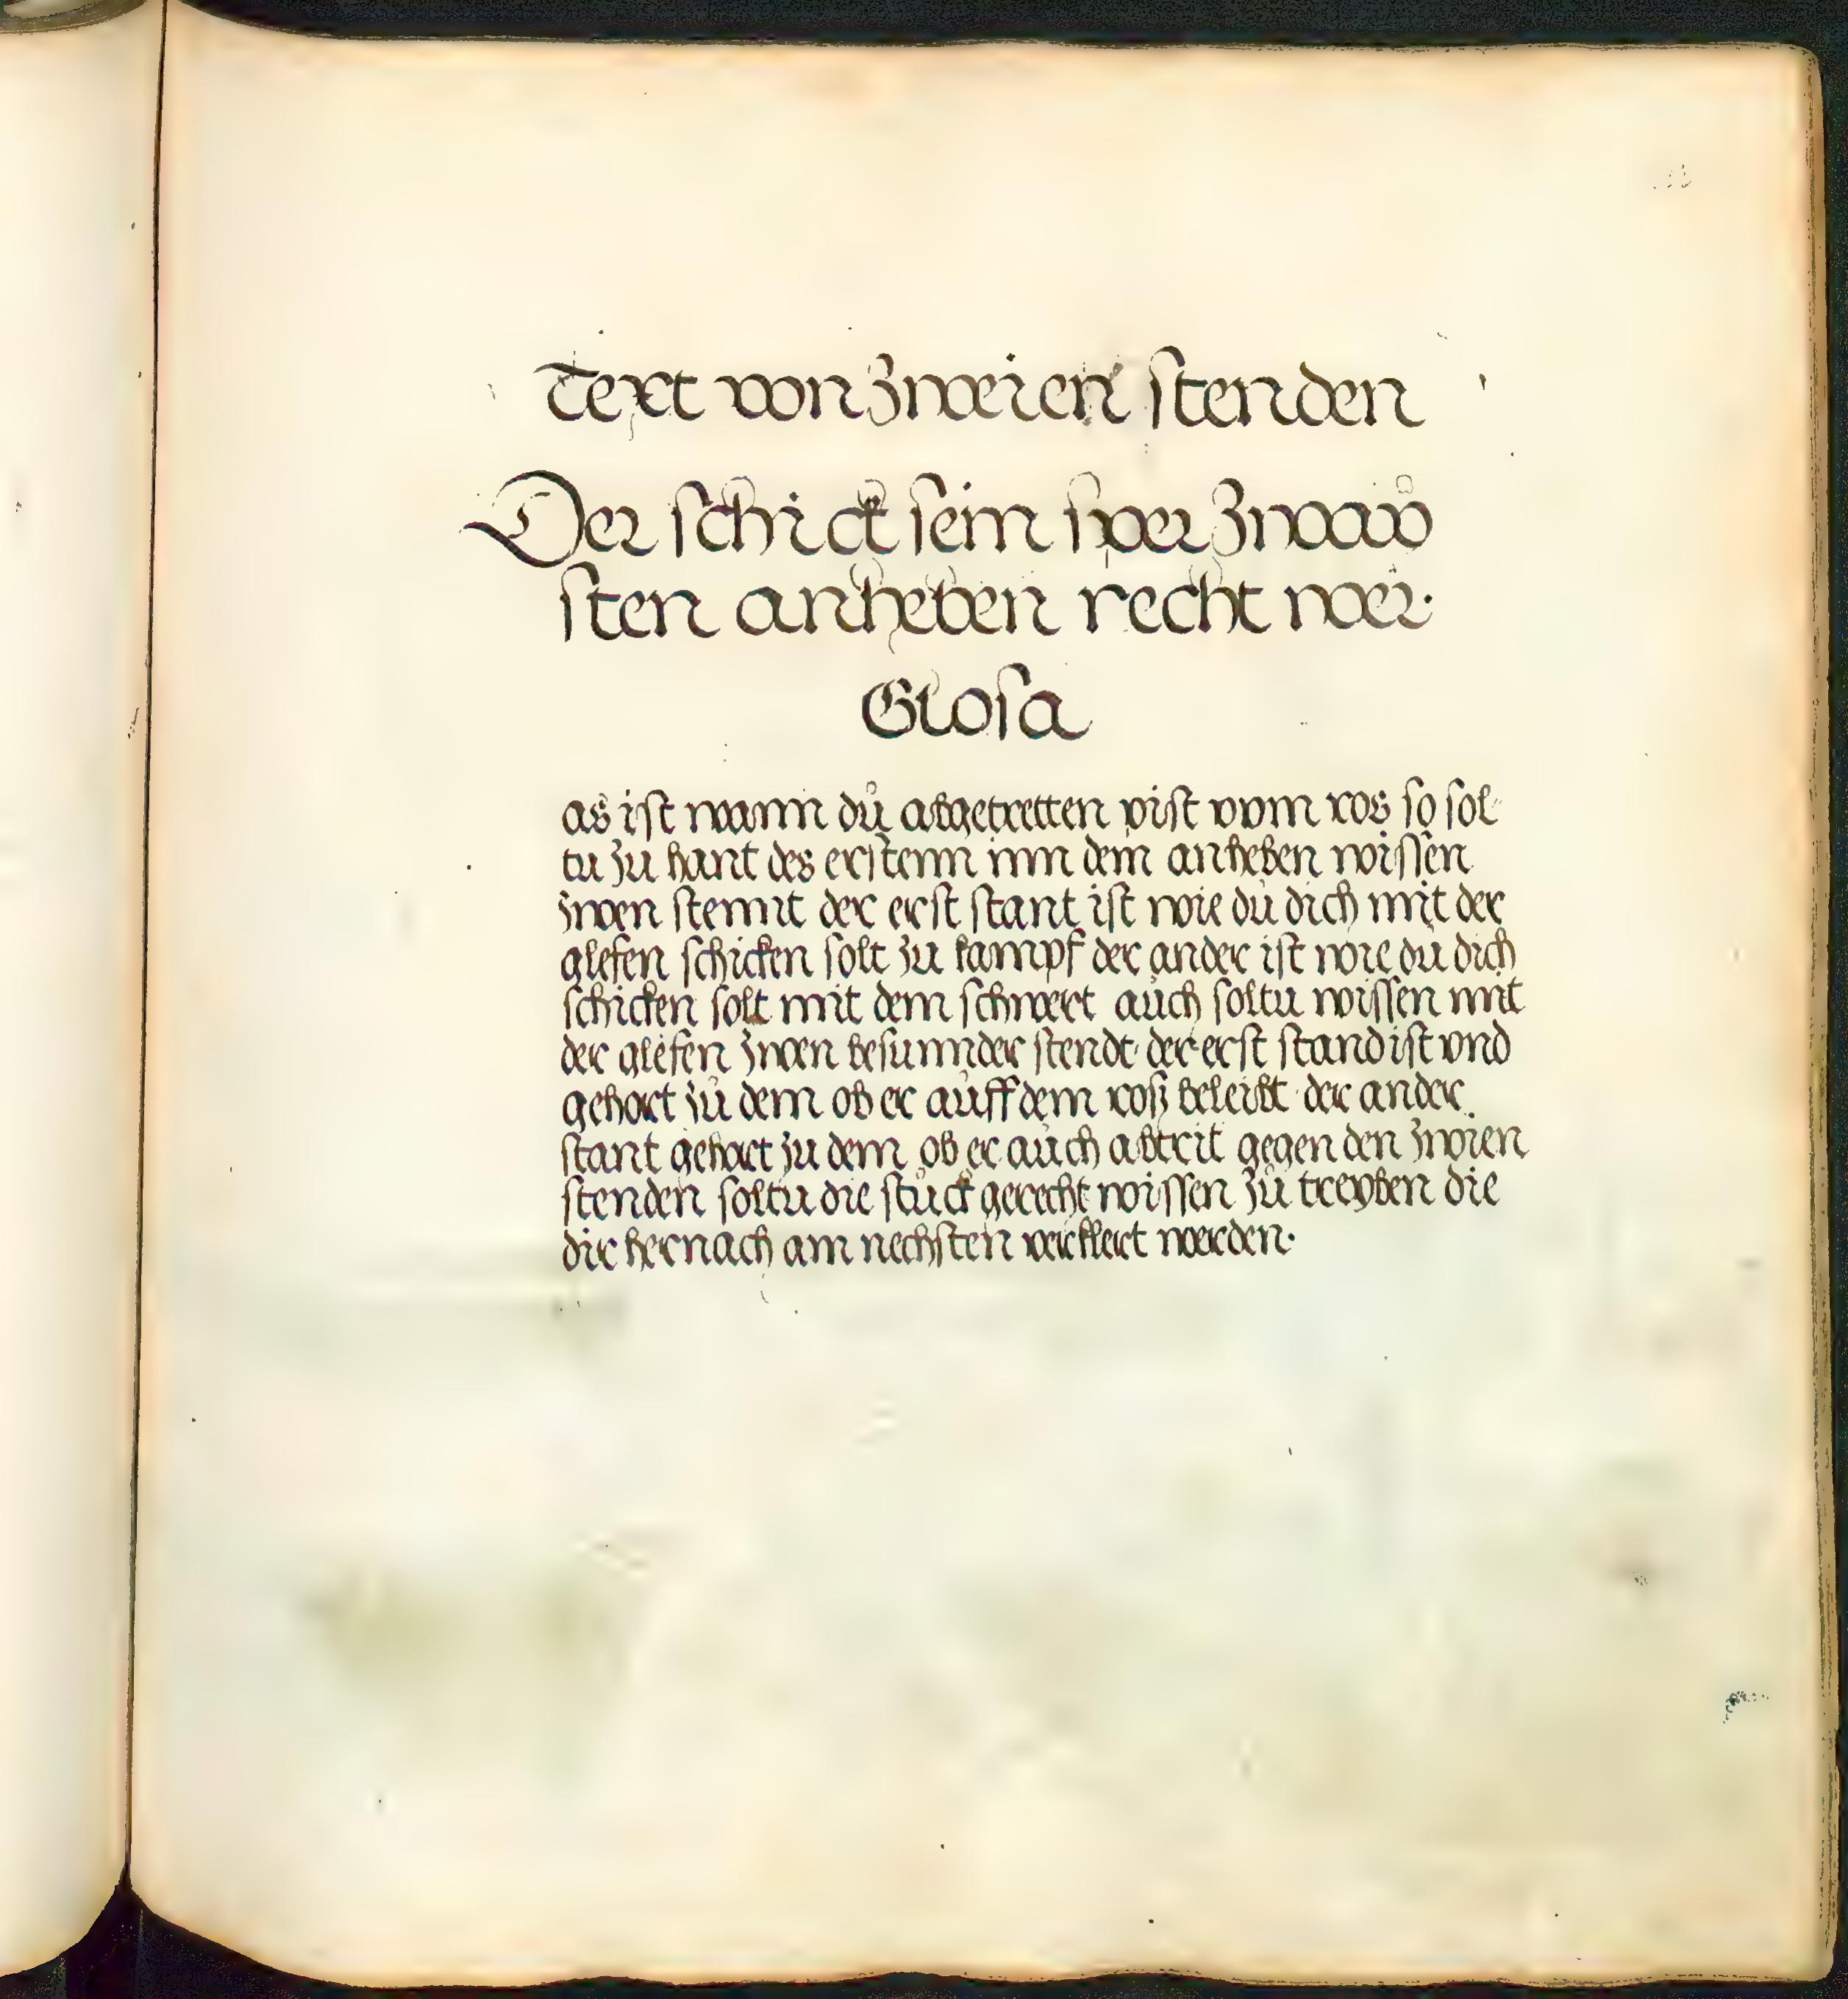 Text von zweien stenden
Der schickt sein sper zwaẘ
sten anheben recht wer·
Glosa
as ist wann dů abgetretten pist vom ros so sol
tu zu hant des erstenn inn dem anheben wissen
zwen stennt der erst stant ist wie du dich mit der
glefen schicken solt zu kampf der ander ist wie du dich
schicken solt mit dem schwert aůch soltu wissen mit
der glefen zwen besunnder stendt der erst stand ist vnd
gehort zů dem ob er aůff dem roß beleibt der ander
stant gehort zu dem ob er aůch abtrit gegen den zwien
stenden soltu die stůck gerecht wissen zů treyben die
dir hernach am nechsten verklert werden·